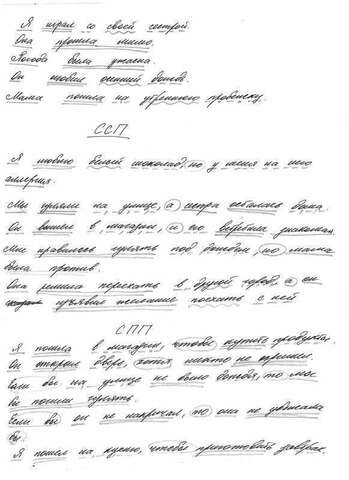 Я играл со своей сестрой.
Она прошла мимо.
Погода была ужасна.
Он любил осенний дождь.
Мама пошла на утреннюю пробежку.
ССП
Я люблю белый шоколад, но у меня на него
аллергия.
Мы гуляли на улице, а сестра осталась дома.
Он вышел в магазин, и его встретила знакомая
Мне нравилось гулять под дождем, но мама
была против.
Она решила переехать в другой город, а он
изъявил желание поехать с ней
СПП
Я пошла в магазин, чтобы купить продукты.
Он открыл дверь, хотя никто не просил.
Если бы на улице не было дождя, то мы
бы пошли гулять.
Если бы он не накричал, то она не уезжала
бы.
Я пошел на кухню, чтобы приготовить завтрак.